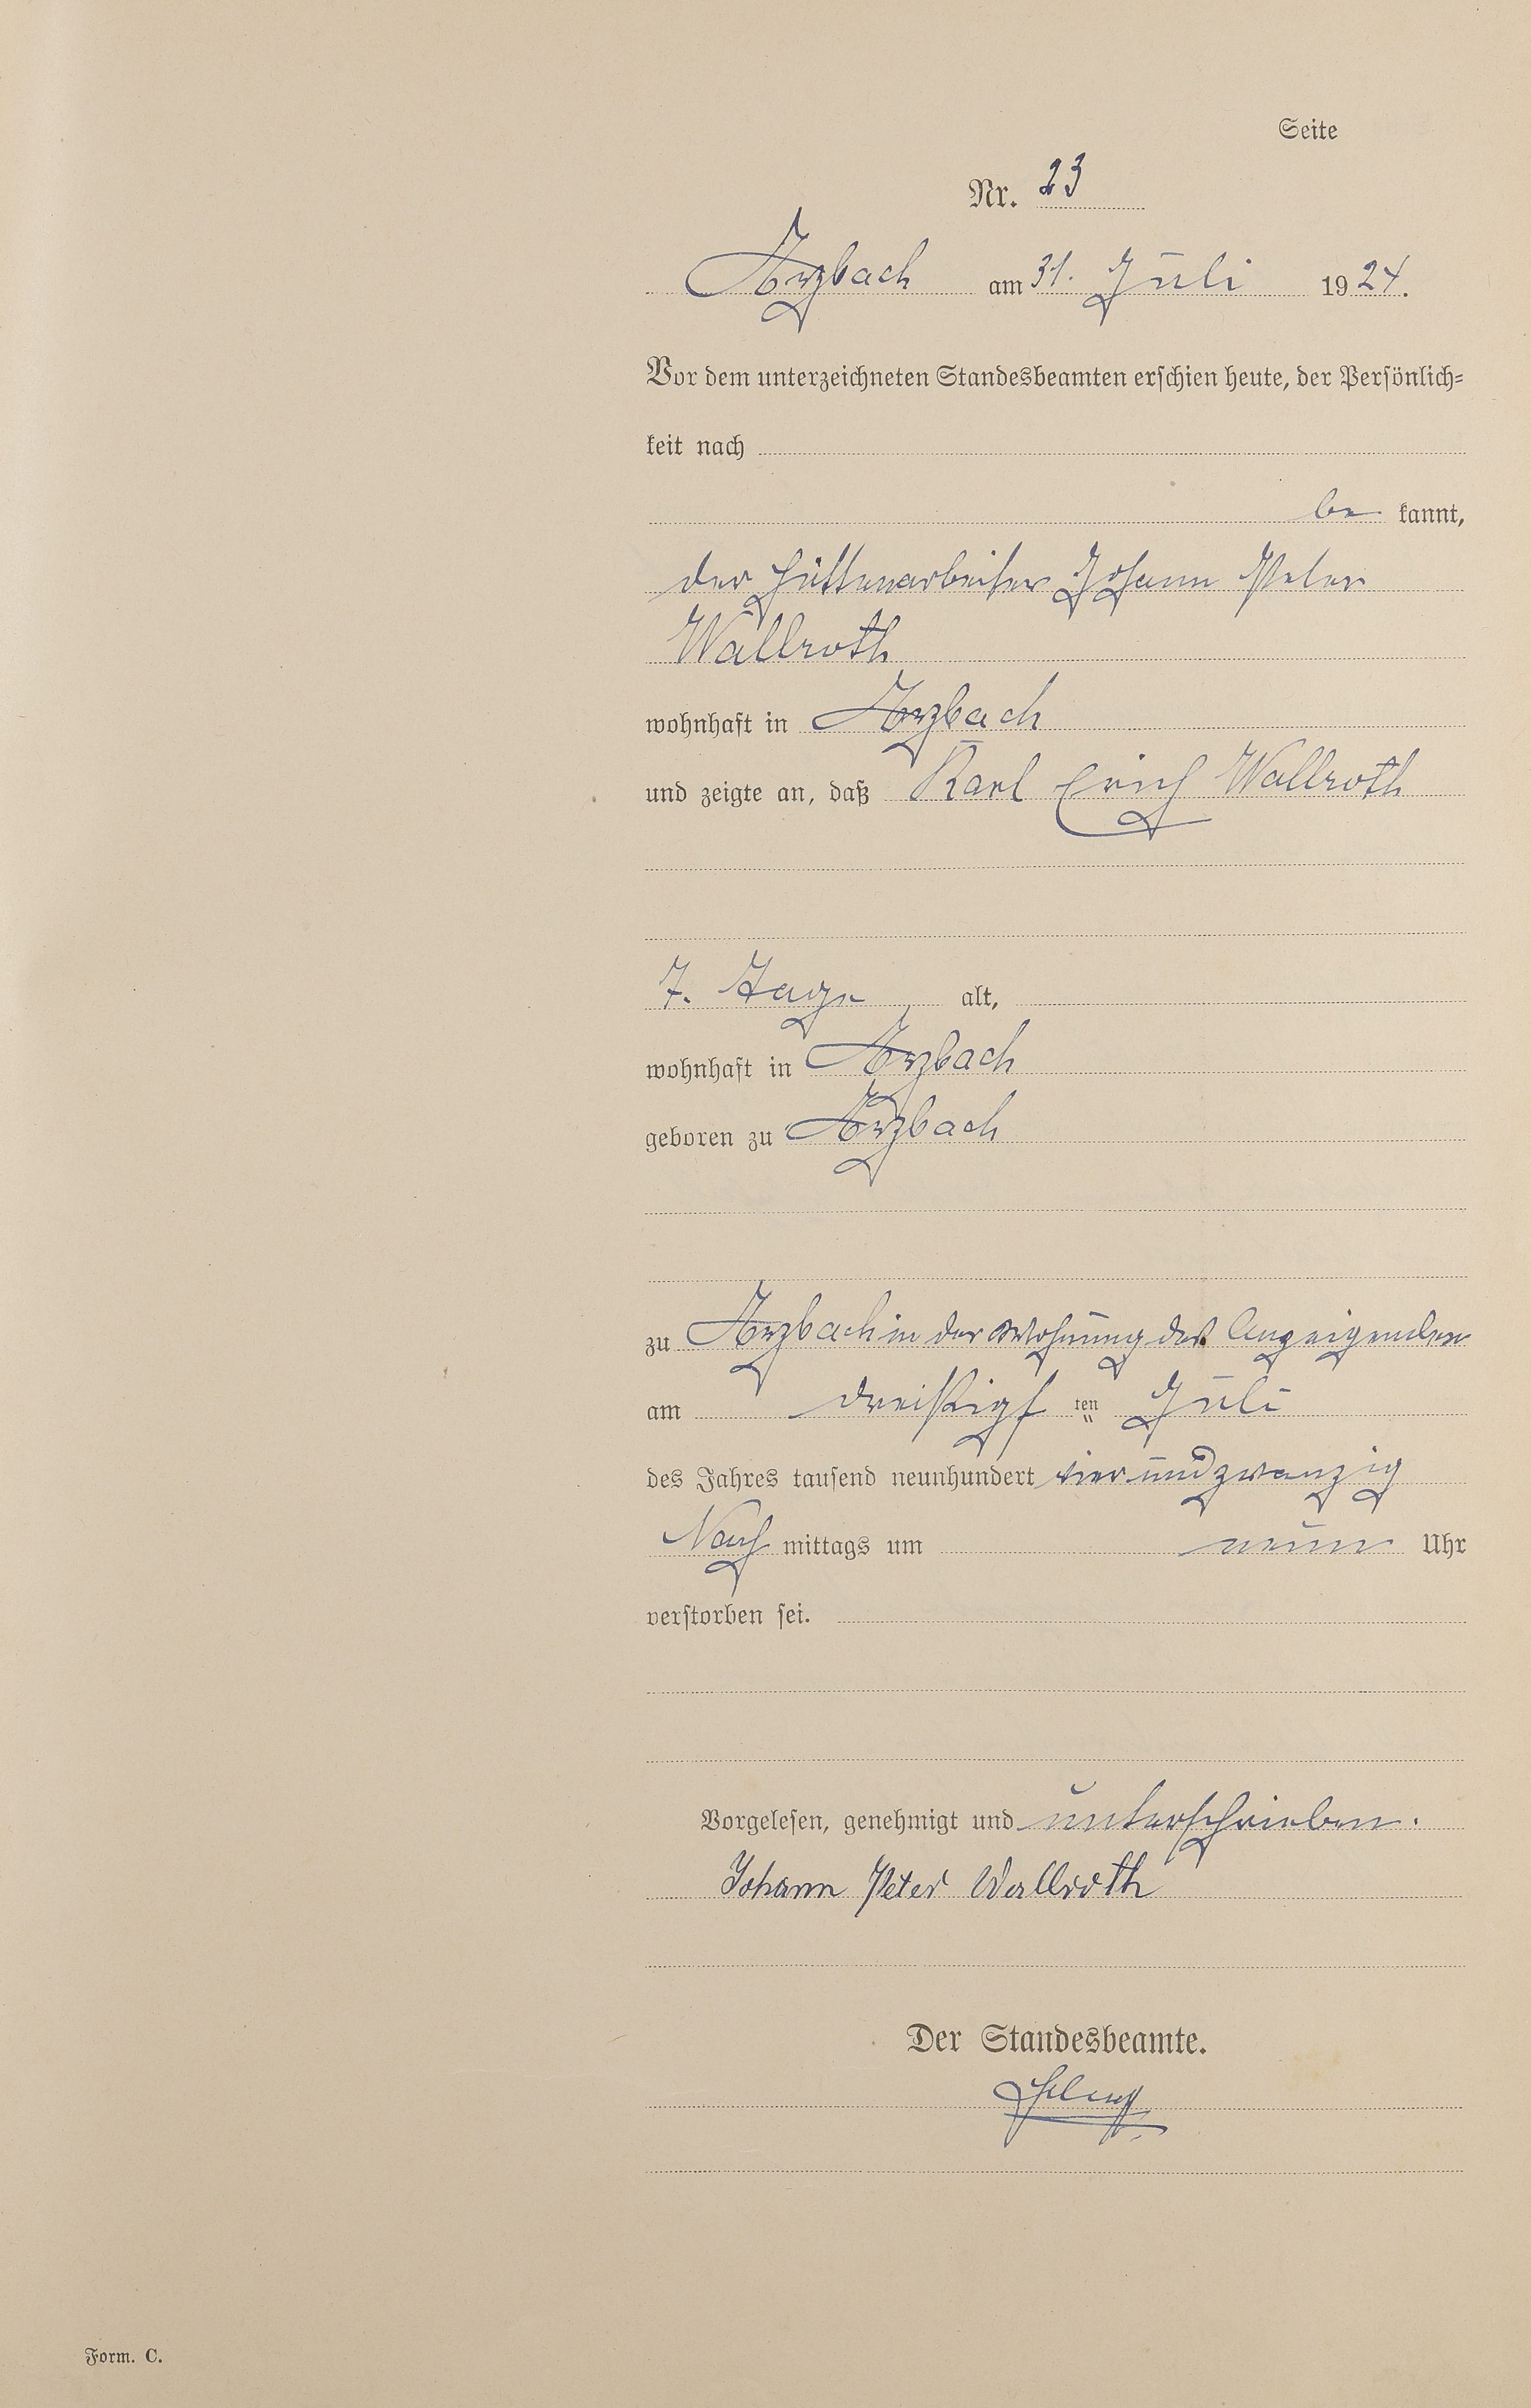 Seite
Nr. 23
Arzbach am 31. Juli 1924.
Vor dem unterzeichneten Standesbeamten erschien heute, der Persönlich=
keit nach
be kannt,
der Hüttenarbeiter Johann Peter
Wallroth
wohnhaft in Arzbach
und zeigte an, daß Karl Erich Wallroth
7. Tage alt,
wohnhaft in Arzbach
geboren zu Arzbach
zu Arzbach in der Wohnung des Anzeigenden
am dreißigs ten Juli
des Jahres tausend neunhundert vierundzwanzig
Nach mittags um neun Uhr
verstorben sei.
Vorgelesen, genehmigt und unterschrieben.
Johann Peter Wallroth
Der Standesbeamte.
Form. C.